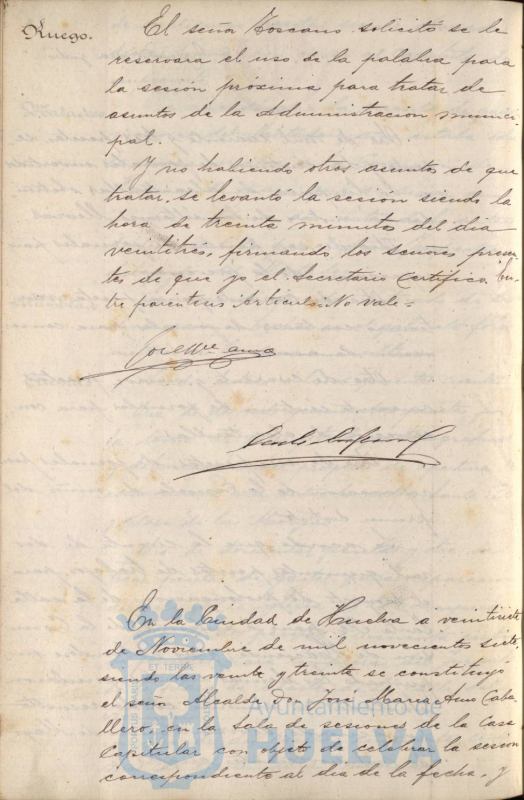 Ruego.
El señor Toscano solicitó se le
reservara el uso de la palabra para
la sesión próxima para tratar de
asuntos de la Administración munici
pal.
Y no habiendo otros asuntos de que
tratar, se levantó la sesión siendo la
hora de treinta minutos del día
veintitrés, firmando los señores presen
tes de que yo el Secretario certifico. En
tre parentesis Artículo. No vale=
En la Ciudad de Huelva a veintisiete
de Noviembre de mil novecientos siete
siendo las veinte y treinta se constituyó
el señor Alcalde Dn. José María Amo Caba
llero, en la Sala de sesiones de la Casa
Capitular con objeto de celebrar la sesión
correspondiente al día de la fecha, y
Ayuntamiento de
HUELVA